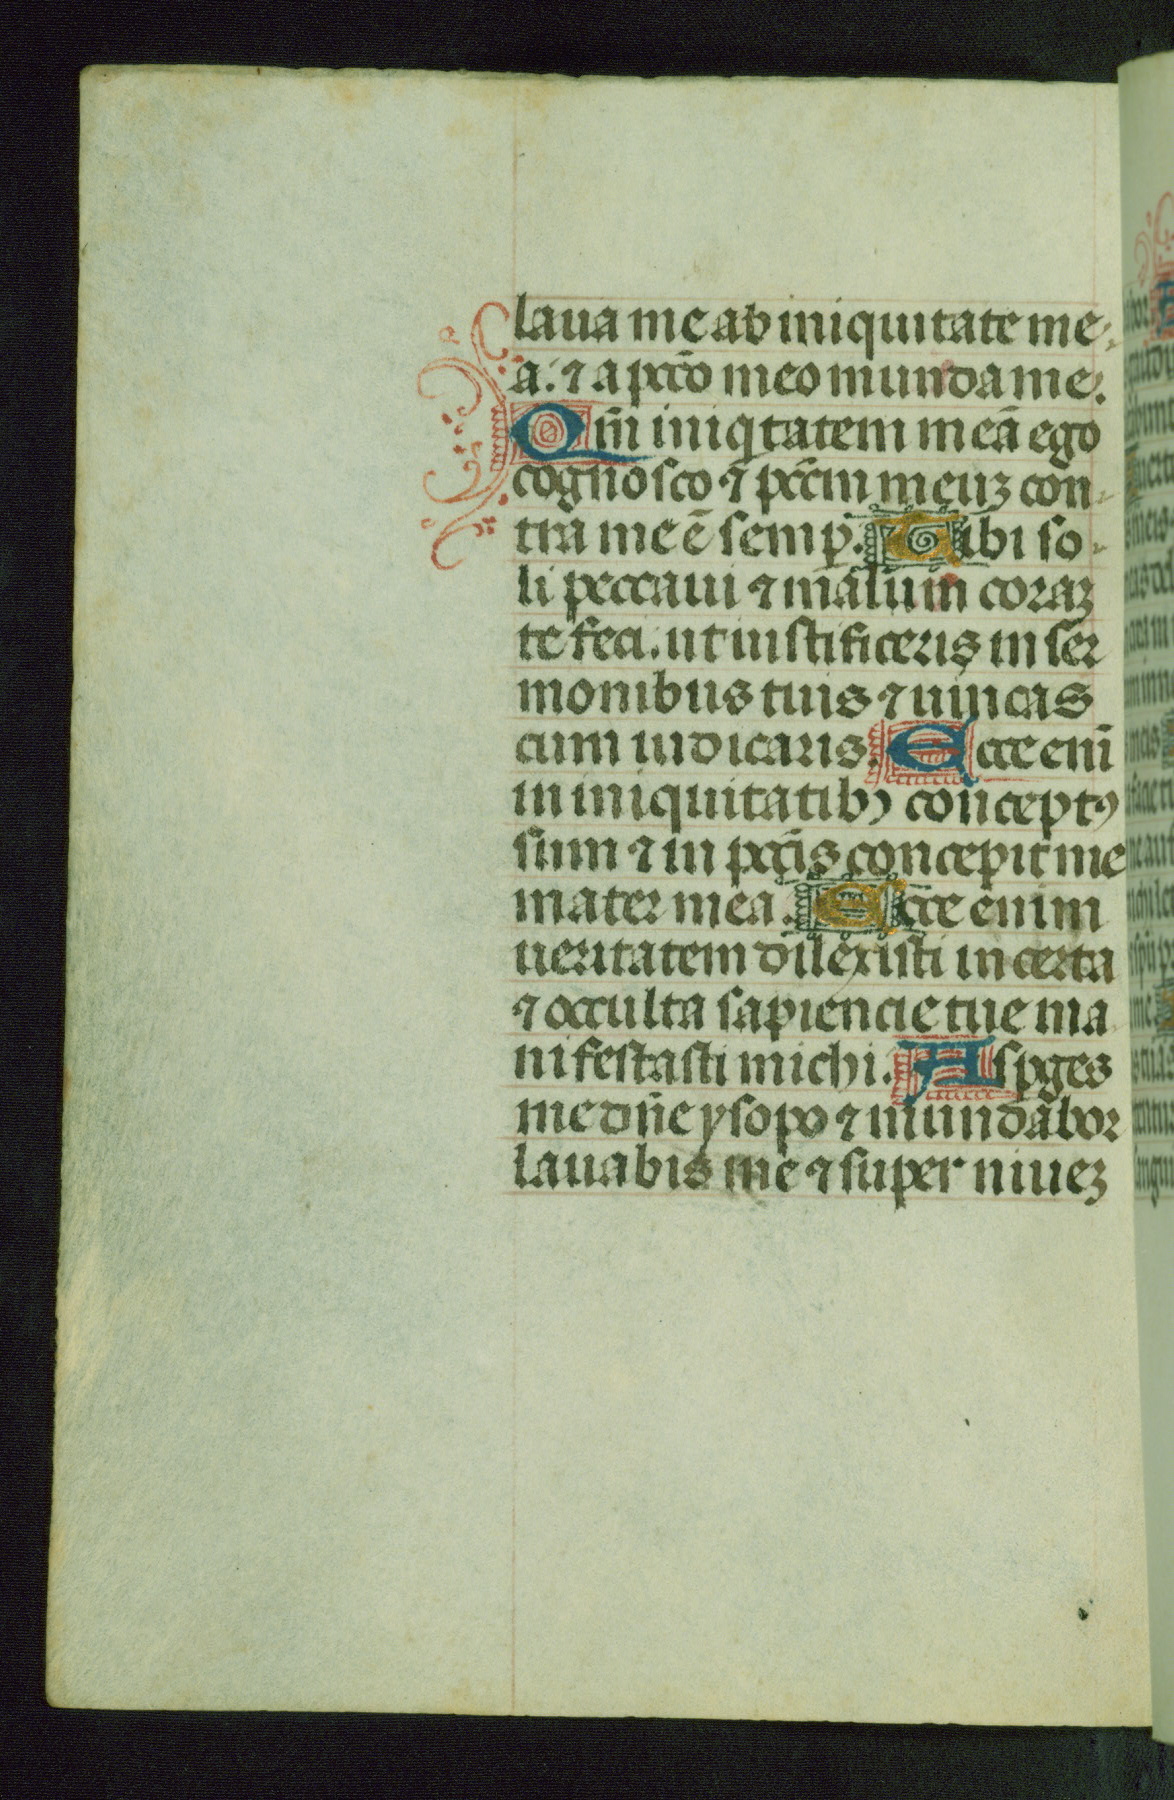 laua me ab iniquitate me-
a. ⁊ a pctō meo munda me.
Qm̄ iniqtatem meā ego
cognosco ⁊ pctm meuʒ con-
tra me ē semp. Tibi so-
li peccaui ⁊ malum coraʒ
te feci. ut iustificeris in ser
monibus tuis ⁊ uincas
cum iudicaris. Ecce eni̅
in iniquitatibꝫ conceptꝯ
sum ⁊ in pctīs concepit me
mater mea. Ecce enim
ueritatem dilexisti incerta
⁊ occulta sapiencie tue ma
nifestasti michi. Aspges
me dn̄e ysopo ⁊ mundabor
lauabis me ⁊ super niueʒ